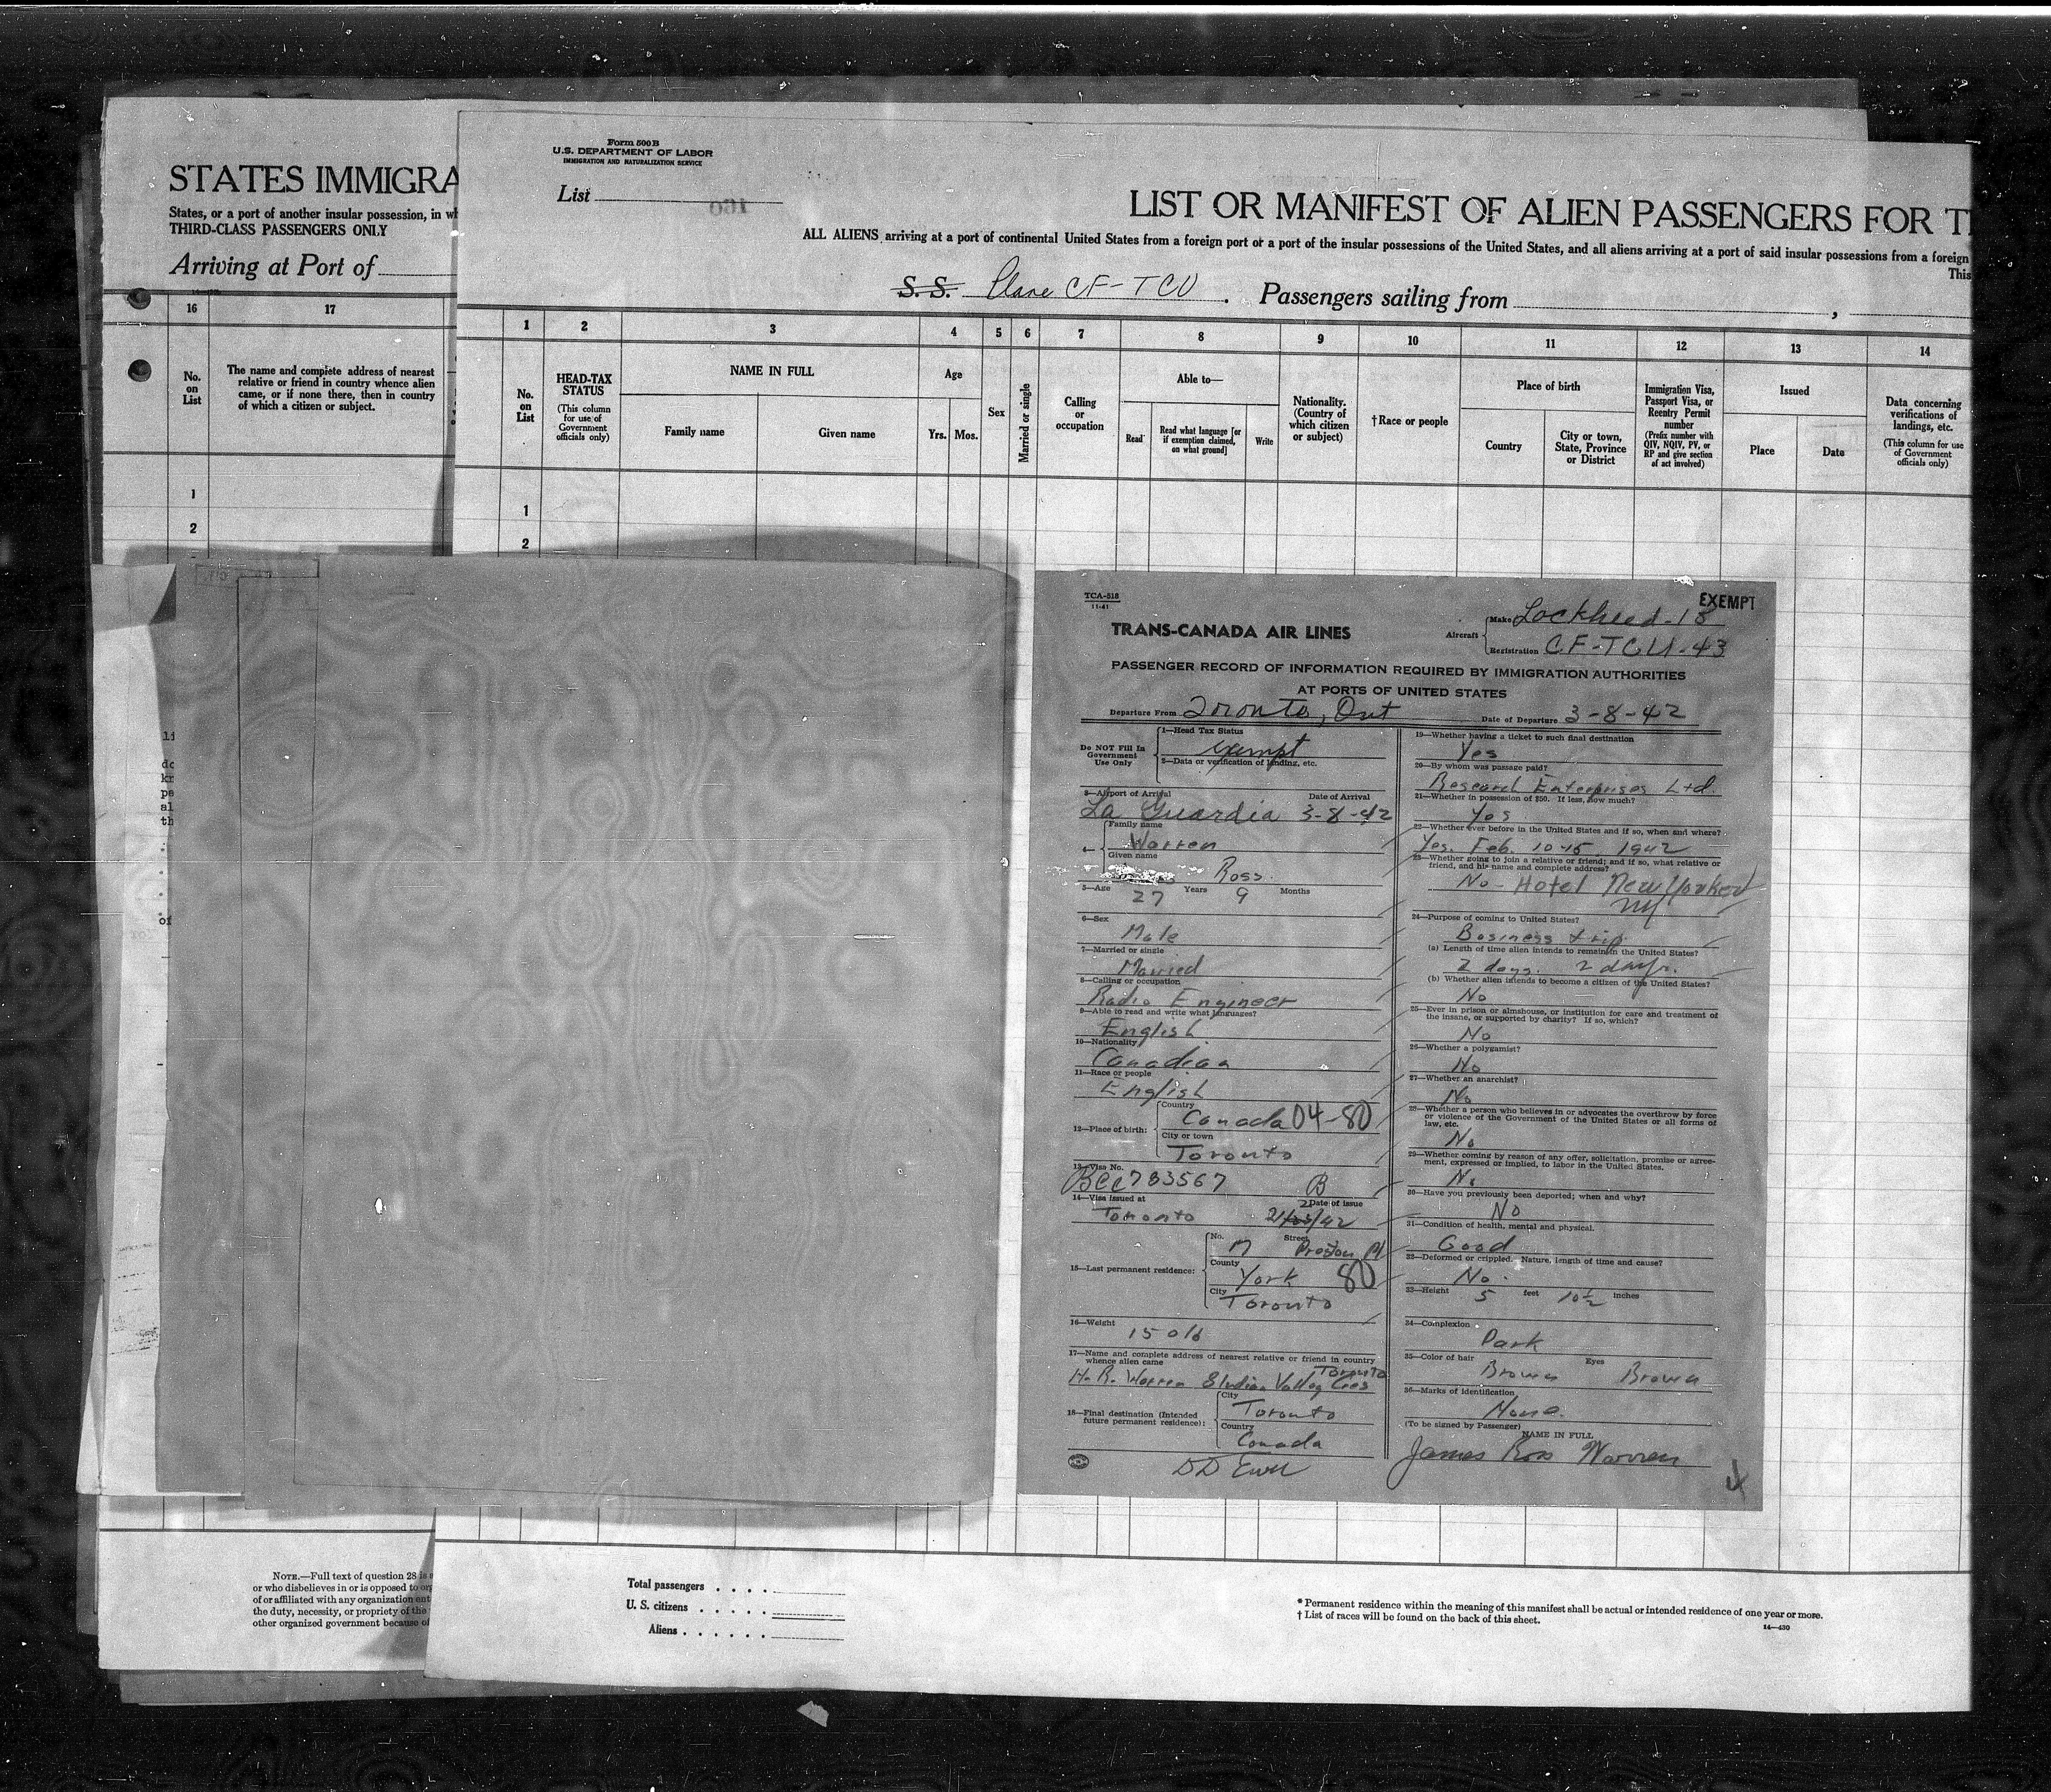 STATES IMMIGRA
States, or a port of another insular possession, in wh
THIRD-CLASS PASSENGERS ONLY
Arriving at Port of
16
17
No.
on
List
The name and complete address of nearest
relative or friend in country whence alien
came, or if none there, then in country
of which a citizen or subject.
1
2
li
do
kr
pe
al
th
of
NOTE.—Full text of question 28 is
or who disbelieves in or is opposed to org
of or affiliated with any organization ent
the duty, necessity, or propriety of the
other organized government because of
Form 500 B
U.S. DEPARTMENT OF LABOR
IMMIGRATION AND NATURALIZATION SERVICE
List
160
LIST OR MANIFEST OF ALIEN PASSENGERS FOR T
ALL ALIENS arriving at a port of continental United States from a foreign port or a port of the insular possessions of the United States, and all aliens arriving at a port of said insular possessions from a foreign
This
S. S. Plane CF-TCU. Passengers sailing from ,
1 2 3 4 5 6 7 8 9 10 11 12 13 14
No.
on
List
HEAD-TAX
STATUS
(This column
for use of
Government
officials only)
NAME IN FULL
Family name
Given name
Age
Yrs.
Mos.
Sex
Married or single
Calling
or
occupation
Able to—
Read
Read what language [or
if exemption claimed,
on what ground]
Write
Nationality.
(Country of
which citizen
or subject)
†Race or people
Place of birth
Country
City or town,
State, Province
or District
Immigration Visa,
Passport Visa, or
Reentry Permit
number
(Prefix number with
QIV, NQIV, PV, or
RP and give section
of act involved)
Issued
Place
Date
Data concerning
verifications of
landings, etc.
(This column for use
of Government
officials only)
1
2
TCA-518
11-41
EXEMPT
TRANS-CANADA AIR LINES
Aircraft
Make Lockheed-18
Registration CF-TCU-43
PASSENGER RECORD OF INFORMATION REQUIRED BY IMMIGRATION AUTHORITIES
AT PORTS OF UNITED STATES
Departure From Toronto, Ont Date of Departure 3-8-42
Do NOT Fill In
Government
Use Only
1—Head Tax Status
exempt
2—Data or verification of landing, etc.
3—Airport of Arrival Date of Arrival
La Guardia 3-8-42
4—
Family name
Warren
Given name
Ross.
5—Age 27 Years 9 Months
6—Sex
Male
7—Married or single
Married
8—Calling or occupation
Radio Engineer
9—Able to read and write what languages?
English
10—Nationality
Canadian
11—Race or people
English
12—Place of birth:
Country
Canada 04-80
City or town
Toronto
13—Visa No.
BCC 783567 B
14—Visa issued at Date of issue
Toronto 21/2/42
15—Last permanent residence:
No. Street
17 Preston Pl
County
York 80
City
Toronto
16—Weight
150 lb
17—Name and complete address of nearest relative or friend in country
whence alien came
Toronto
H. R. Warren 8 Indian Valley Cres
18—Final destination (Intended
future permanent residence):
City
Toronto
Country
Canada
19—Whether having a ticket to such final destination
Yes
20—By whom was passage paid?
Research Enterprises Ltd.
21—Whether in possession of $50. If less, how much?
Yes
22—Whether ever before in the United States and if so, when and where?
Yes. Feb. 10-15, 1942
23—Whether going to join a relative or friend; and if so, what relative or
friend, and his name and complete address?
No - Hotel New Yorker
NY
24—Purpose of coming to United States?
Business trip
(a) Length of time alien intends to remain in the United States?
2 days. 2 days.
(b) Whether alien intends to become a citizen of the United States?
No
25—Ever in prison or almshouse, or institution for care and treatment of
the insane, or supported by charity? If so, which?
No
26—Whether a polygamist?
No
27—Whether an anarchist?
No
28—Whether a person who believes in or advocates the overthrow by force
or violence of the Government of the United States or all forms of
law, etc.
No
29—Whether coming by reason of any offer, solicitation, promise or agree-
ment, expressed or implied, to labor in the United States.
No
30—Have you previously been deported; when and why?
No
31—Condition of health, mental and physical.
Good
32—Deformed or crippled. Nature, length of time and cause?
No.
33—Height 5 feet 10½ inches
34—Complexion
Dark
35—Color of hair Eyes
Brown Brown
36—Marks of Identification
None.
(To be signed by Passenger)
NAME IN FULL
James Ross Warren
Total passengers
U. S. citizens
Aliens
* Permanent residence within the meaning of this manifest shall be actual or intended residence of one year or more.
† List of races will be found on the back of this sheet.
14—430